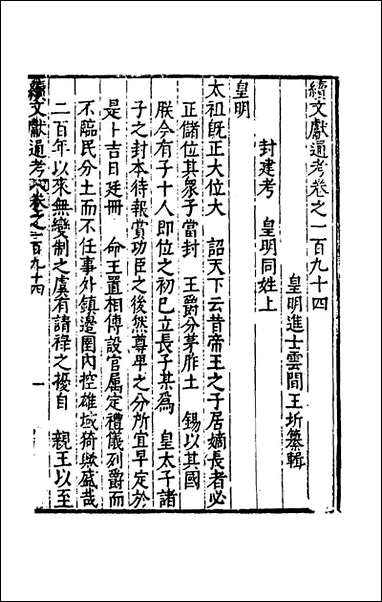 續文獻通考卷之一百九十四
皇明進士雲間王圻纂輯
封建考 皇明同姓上
皇明
太祖既正大位大 詔天下云昔帝王之子居嫡長者必
正儲位其眾子當封 王爵分茅胙土 錫以其國
朕今有子十人即位之初已立長子某為 皇太子諸
子之封本待報賞功臣之後然尊卑之分所宜早定於
是卜吉日廷冊 命王置相傅設官属定禮儀列爵而
不臨民分土而不任事外鎮邊圉內控雄域猗歟盛哉
二百年以來無變制之虞有請祿之擾自 親王以至
續文獻通考 卷之一百九十四 一